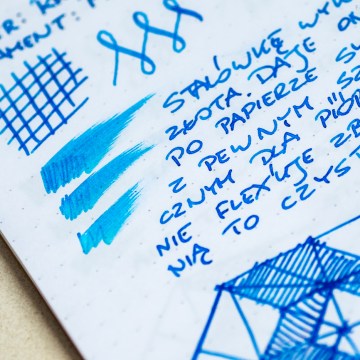 STALÓWKĘ WYK
ZŁOTA. DAJE
PO PAPIERZE
Z PEWNYM "S
CZNYM DLA PIÓR
NIE FLEXUJE ZB
NIĄ TO CZYST